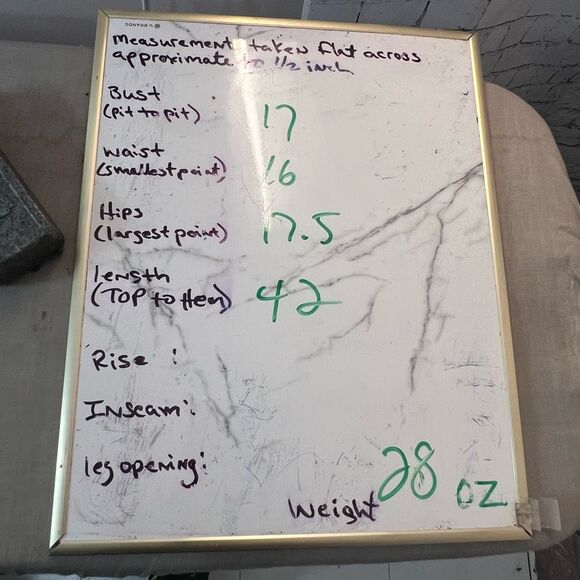 U BRANDS
Measurements taken flat across
approximate to 1/2 inch
Bust
(pit to pit) 17
waist
(smallest point) 16
Hips
(largest point) 17.5
length
(TOP to Hem) 42
Rise :
Inseam:
leg opening:
Weight 28 oz